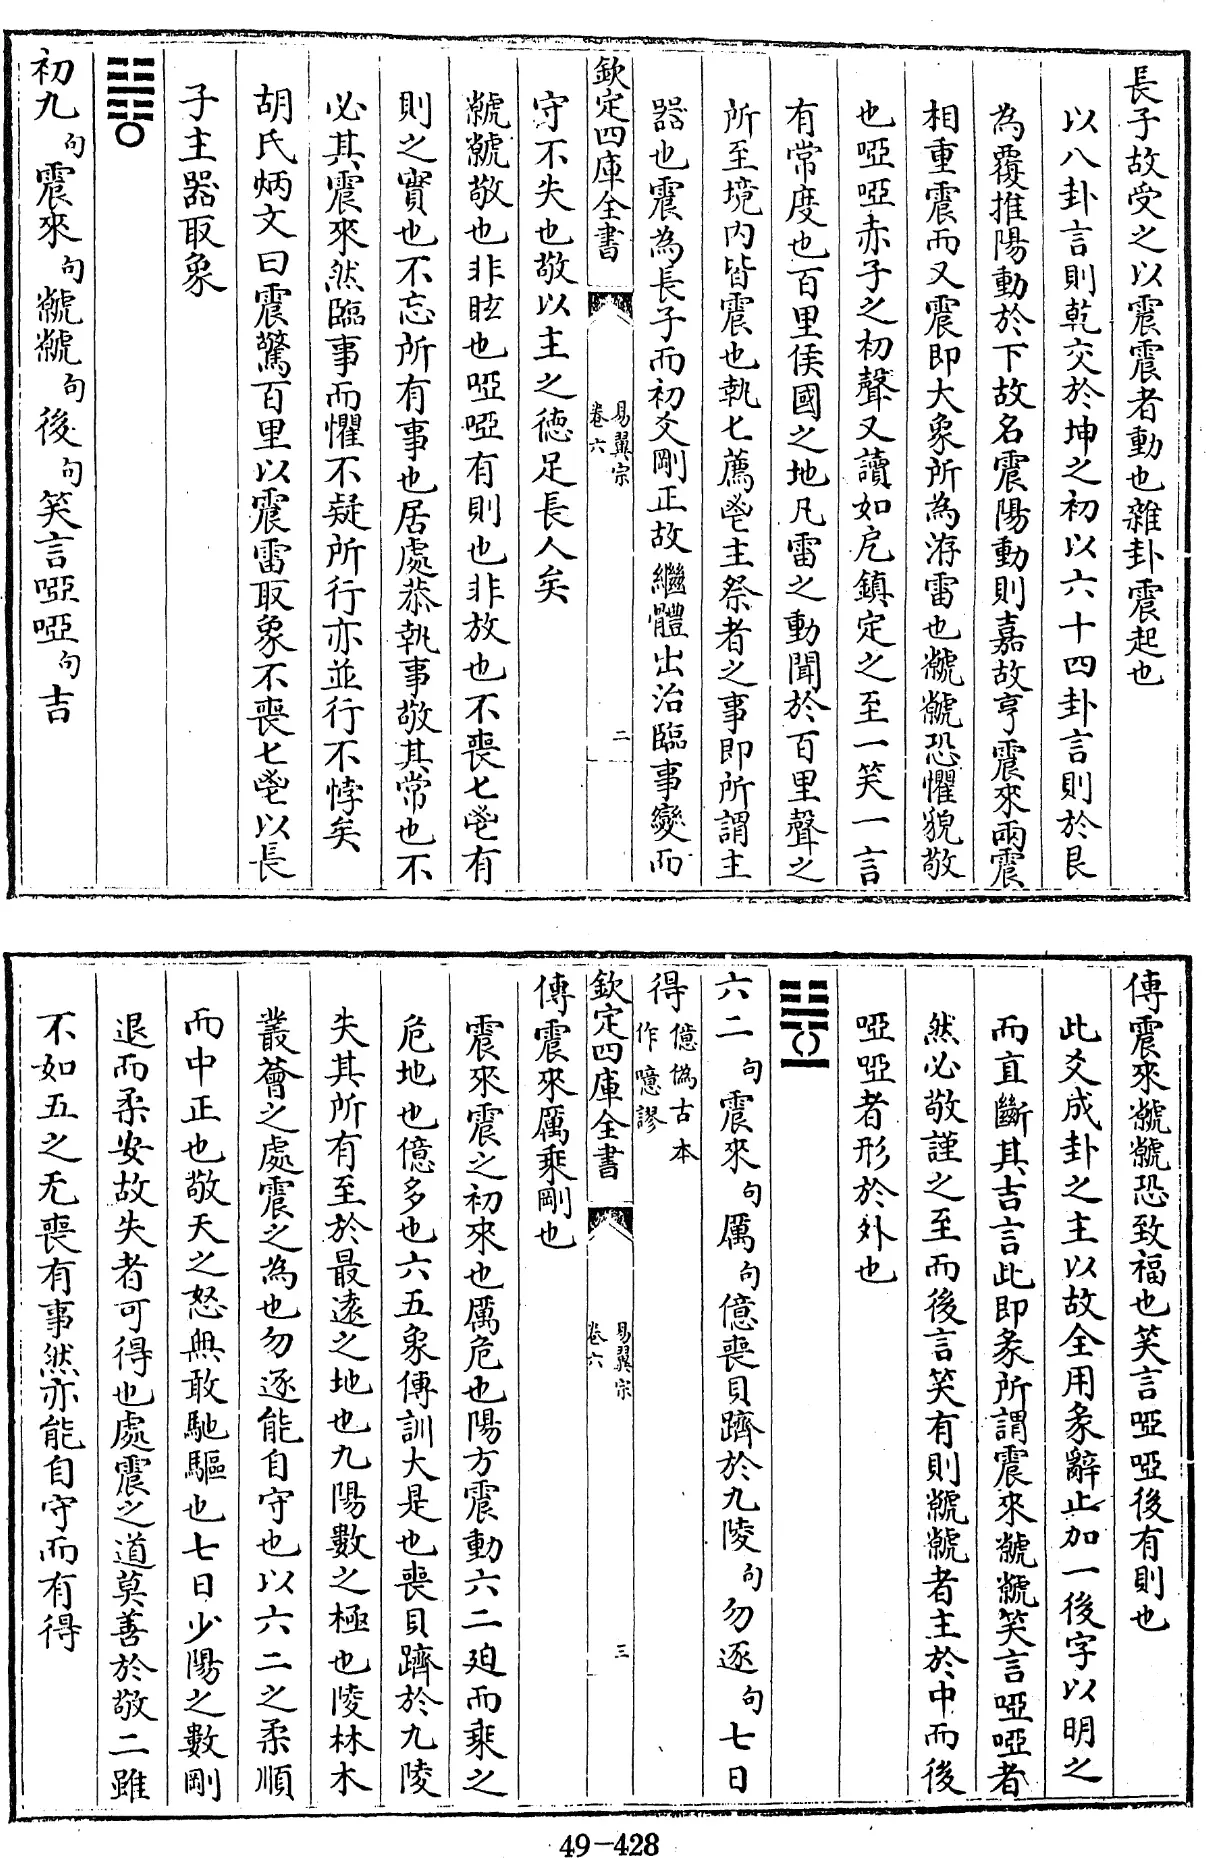 長子故受之以震震者動也雜卦震起也
以八卦言則乾交於坤之初以六十四卦言則於艮
為覆推陽動於下故名震陽動則嘉故亨震來兩震
相重震而又震即大象所為洊雷也虩虩恐懼貌敬
也啞啞赤子之初聲又讀如厄鎮定之至一笑一言
有常度也百里侯國之地凡雷之動聞於百里聲之
所至境内皆震也執匕薦鬯主祭者之事即所謂主
器也震為長子而初爻剛正故繼體出治臨事變而
欽定四庫全書
易翼宗
卷六
二
守不失也敬以主之德足長人矣
虩虩敬也非眩也啞啞有則也非放也不喪匕鬯有
則之實也不忘所有事也居處恭執事敬其常也不
必其震來然臨事而懼不疑所行亦並行不悖矣
胡氏炳文曰震驚百里以震雷取象不喪匕鬯以長
子主器取象
初九句震來句虩虩句後句笑言啞啞句吉
傳震來虩虩恐致福也笑言啞啞後有則也
此爻成卦之主以故全用彖辭止加一後字以明之
而直斷其吉言此即彖所謂震來虩虩笑言啞啞者
然必敬謹之至而後言笑有則虩虩者主於中而後
啞啞者形於外也
六二句震來句厲句億喪貝躋於九陵句勿逐句七日
得億僞古本作噫謬
欽定四庫全書
易翼宗
卷六
三
傳震來厲乘剛也
震來震之初來也厲危也陽方震動六二廹而乘之
危地也億多也六五象傳訓大是也喪貝躋於九陵
失其所有至於最遠之地也九陽數之極也陵林木
叢薈之處震之為也勿逐能自守也以六二之柔順
而中正也敬天之怒無敢馳驅也七日少陽之數剛
退而柔安故失者可得也處震之道莫善於敬二雖
不如五之无喪有事然亦能自守而有得
49-428